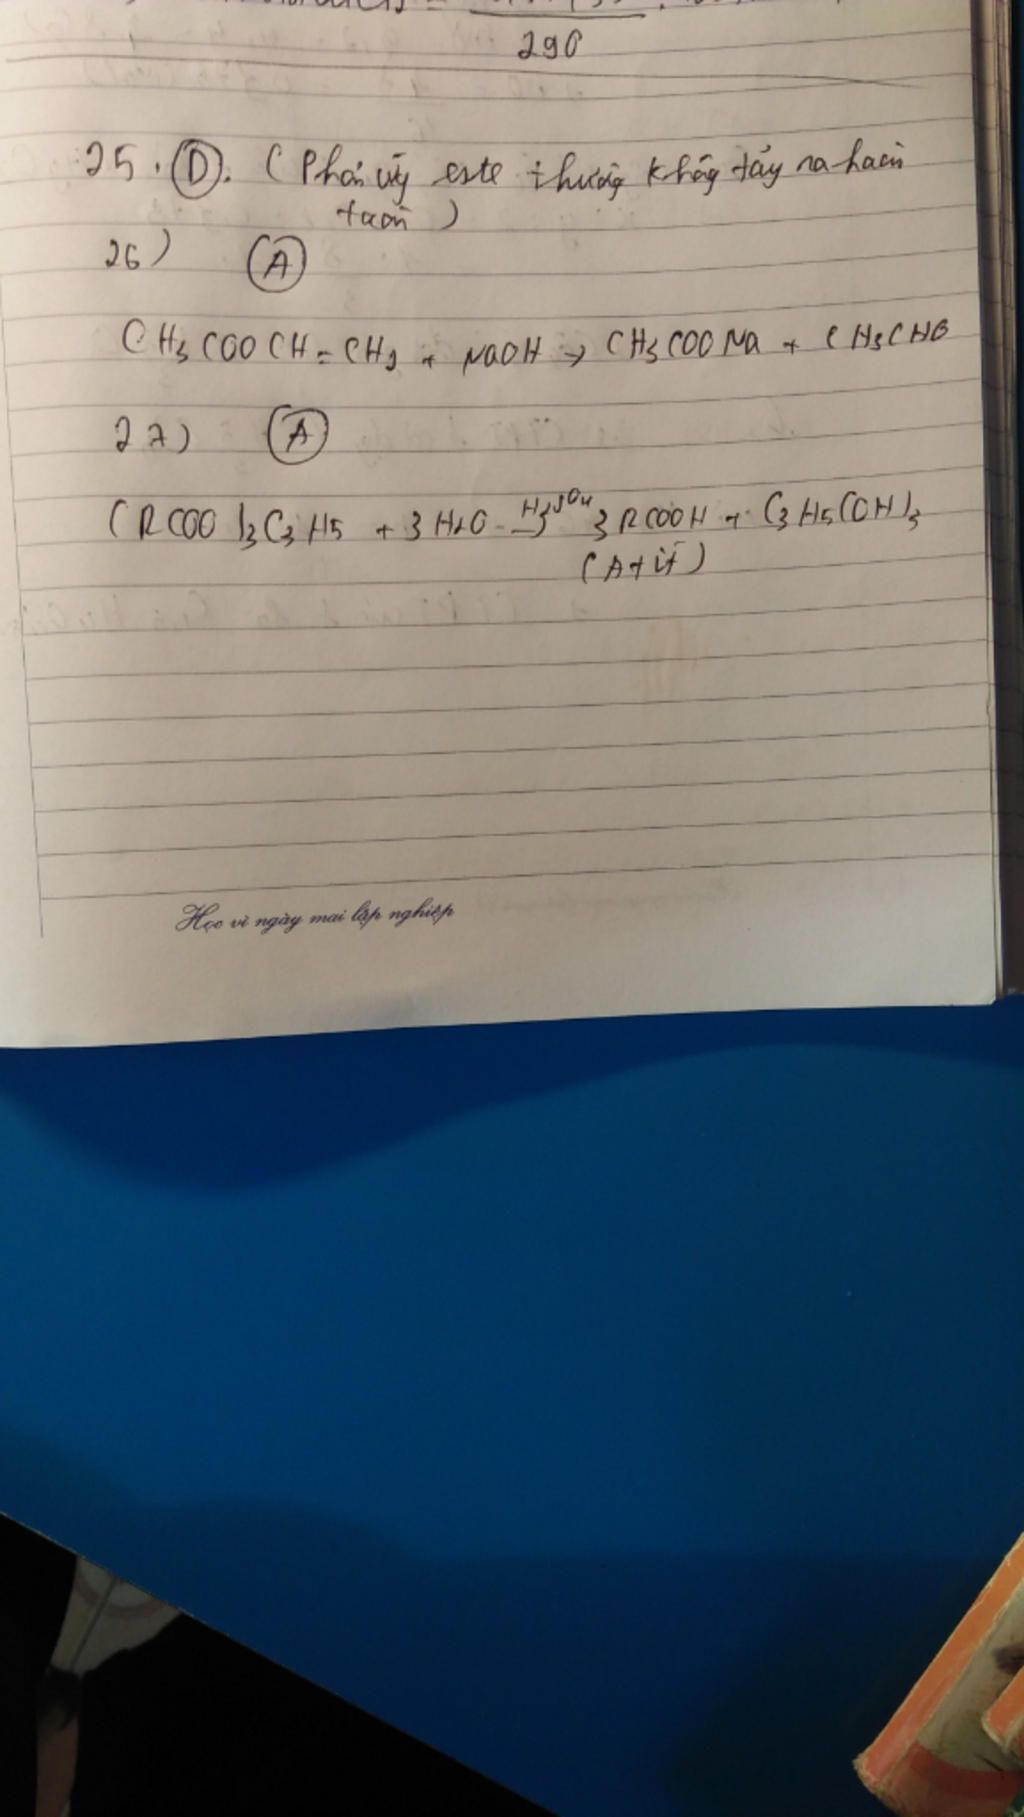 290
25. D. (Phản ứng este thường không xảy ra hoàn
toàn)
26) A
CH3COOCH=CH2 + NaOH → CH3COONa + CH3CHO
27) A
(RCOO)3C3H5 + 3H2O H2SO4 → 3RCOOH + C3H5(OH)3
(Axit)
Học vì ngày mai lập nghiệp